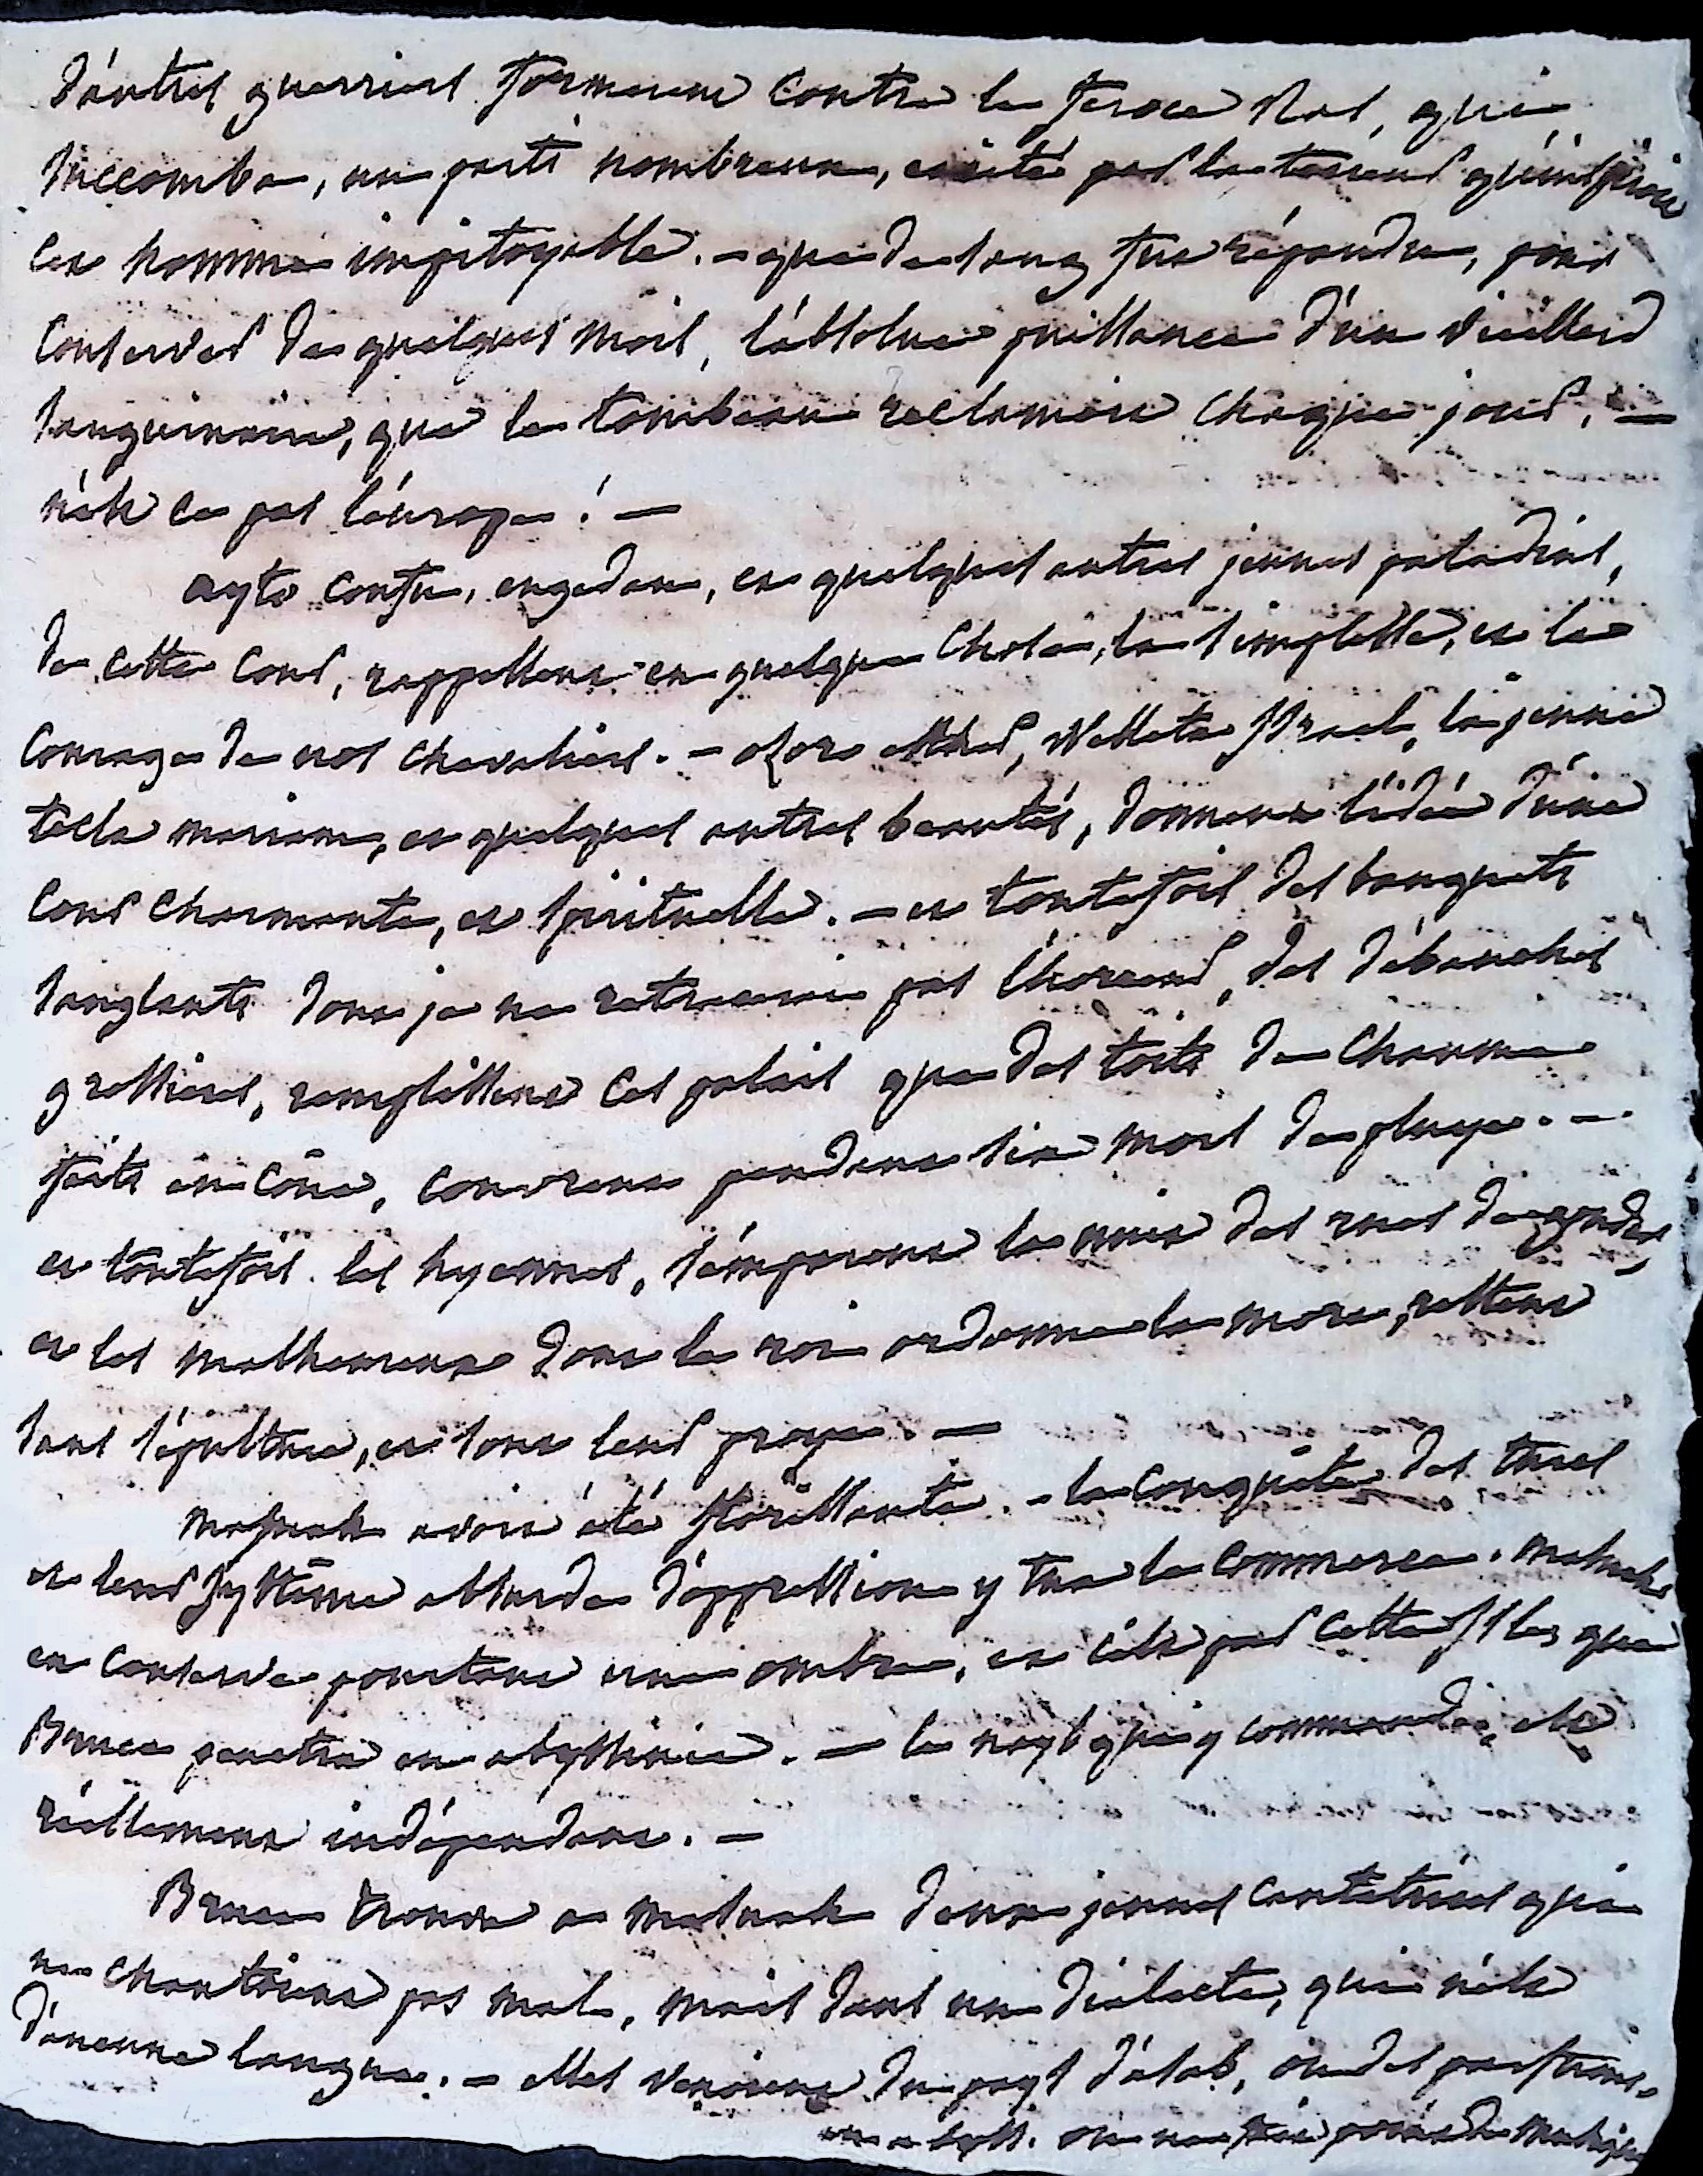 d'autres guerriers formerent contre le feroce Ras, qui
succomba, un parti nombreux, excité par la terreur qu'inspiroit
cet homme impitoyable. – que de sang fut répandu, pour
conserver de quelques mois, l'absolue puissance d'un vieillard
sanguinaire, que le tombeau reclamoit chaque jour. –
n'est ce pas l'europe ! –
ayto confu, engedan, et quelques autres jeunes paladins,
de cette cour, rappellent en quelque chose, la simplesse, et le
courage de nos chevaliers. – ozoro esther, Welleta Israel, la jeune
tecla mariam, et quelques autres beautés, donnent l'idée d'une
cour charmante, et spirituelle. – et toutefois des banquets
sanglants dont je ne retracerai pas l'horreur, des débauches
grossieres, remplissent ces palais que des toits de chaume
faits en cône, couvrent pendant six mois de pluye. –
et toutefois les hyennes, s'emparent la nuit des rues de gondar,
et les malheureux dont le roi ordonne la mort, restent
sans sépulture, et sont leur proye. –
Masuah avoit été florissante. – la conquête des turcs
et leur systême absurde d'oppression y tua le commerce. Masuah
en conserve pourtant une ombre, et c'est par cette isle, que
Bruce penetra en abyssinie. – le nayb qui y commande, est
réellement indépendant. –
Bruce trouva a Masuah deux jeunes cantatrices qui
ne chantoient pas mal, mais dans un dialecte, qui n'est
d'aucune langue. – elles venoient du pays d'azab, ou des parfums,
en abyss. on ne point de musique